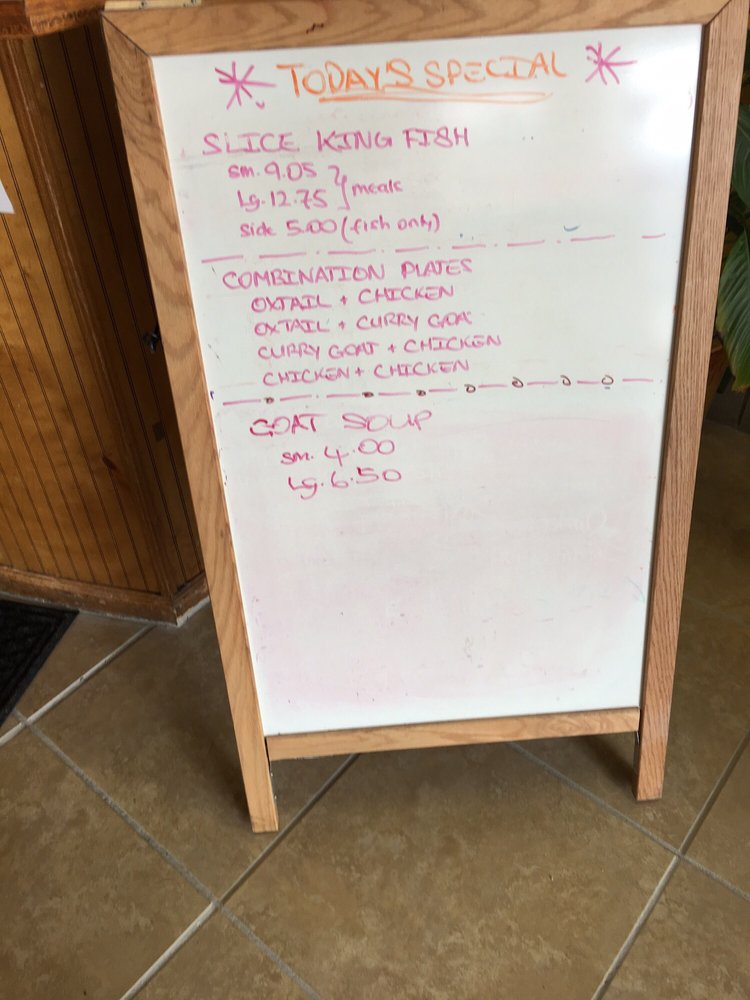 TODAY'S SPECIAL
SLICE KING FISH
sm. 9.05
Lg. 12.75 } meals
side 5.00 (fish only)
COMBINATION PLATES
OXTAIL + CHICKEN
OXTAIL + CURRY GOA
CURRY GOAT + CHICKEN
CHICKEN + CHICKEN
GOAT SOUP
sm. 4.00
Lg. 6.50